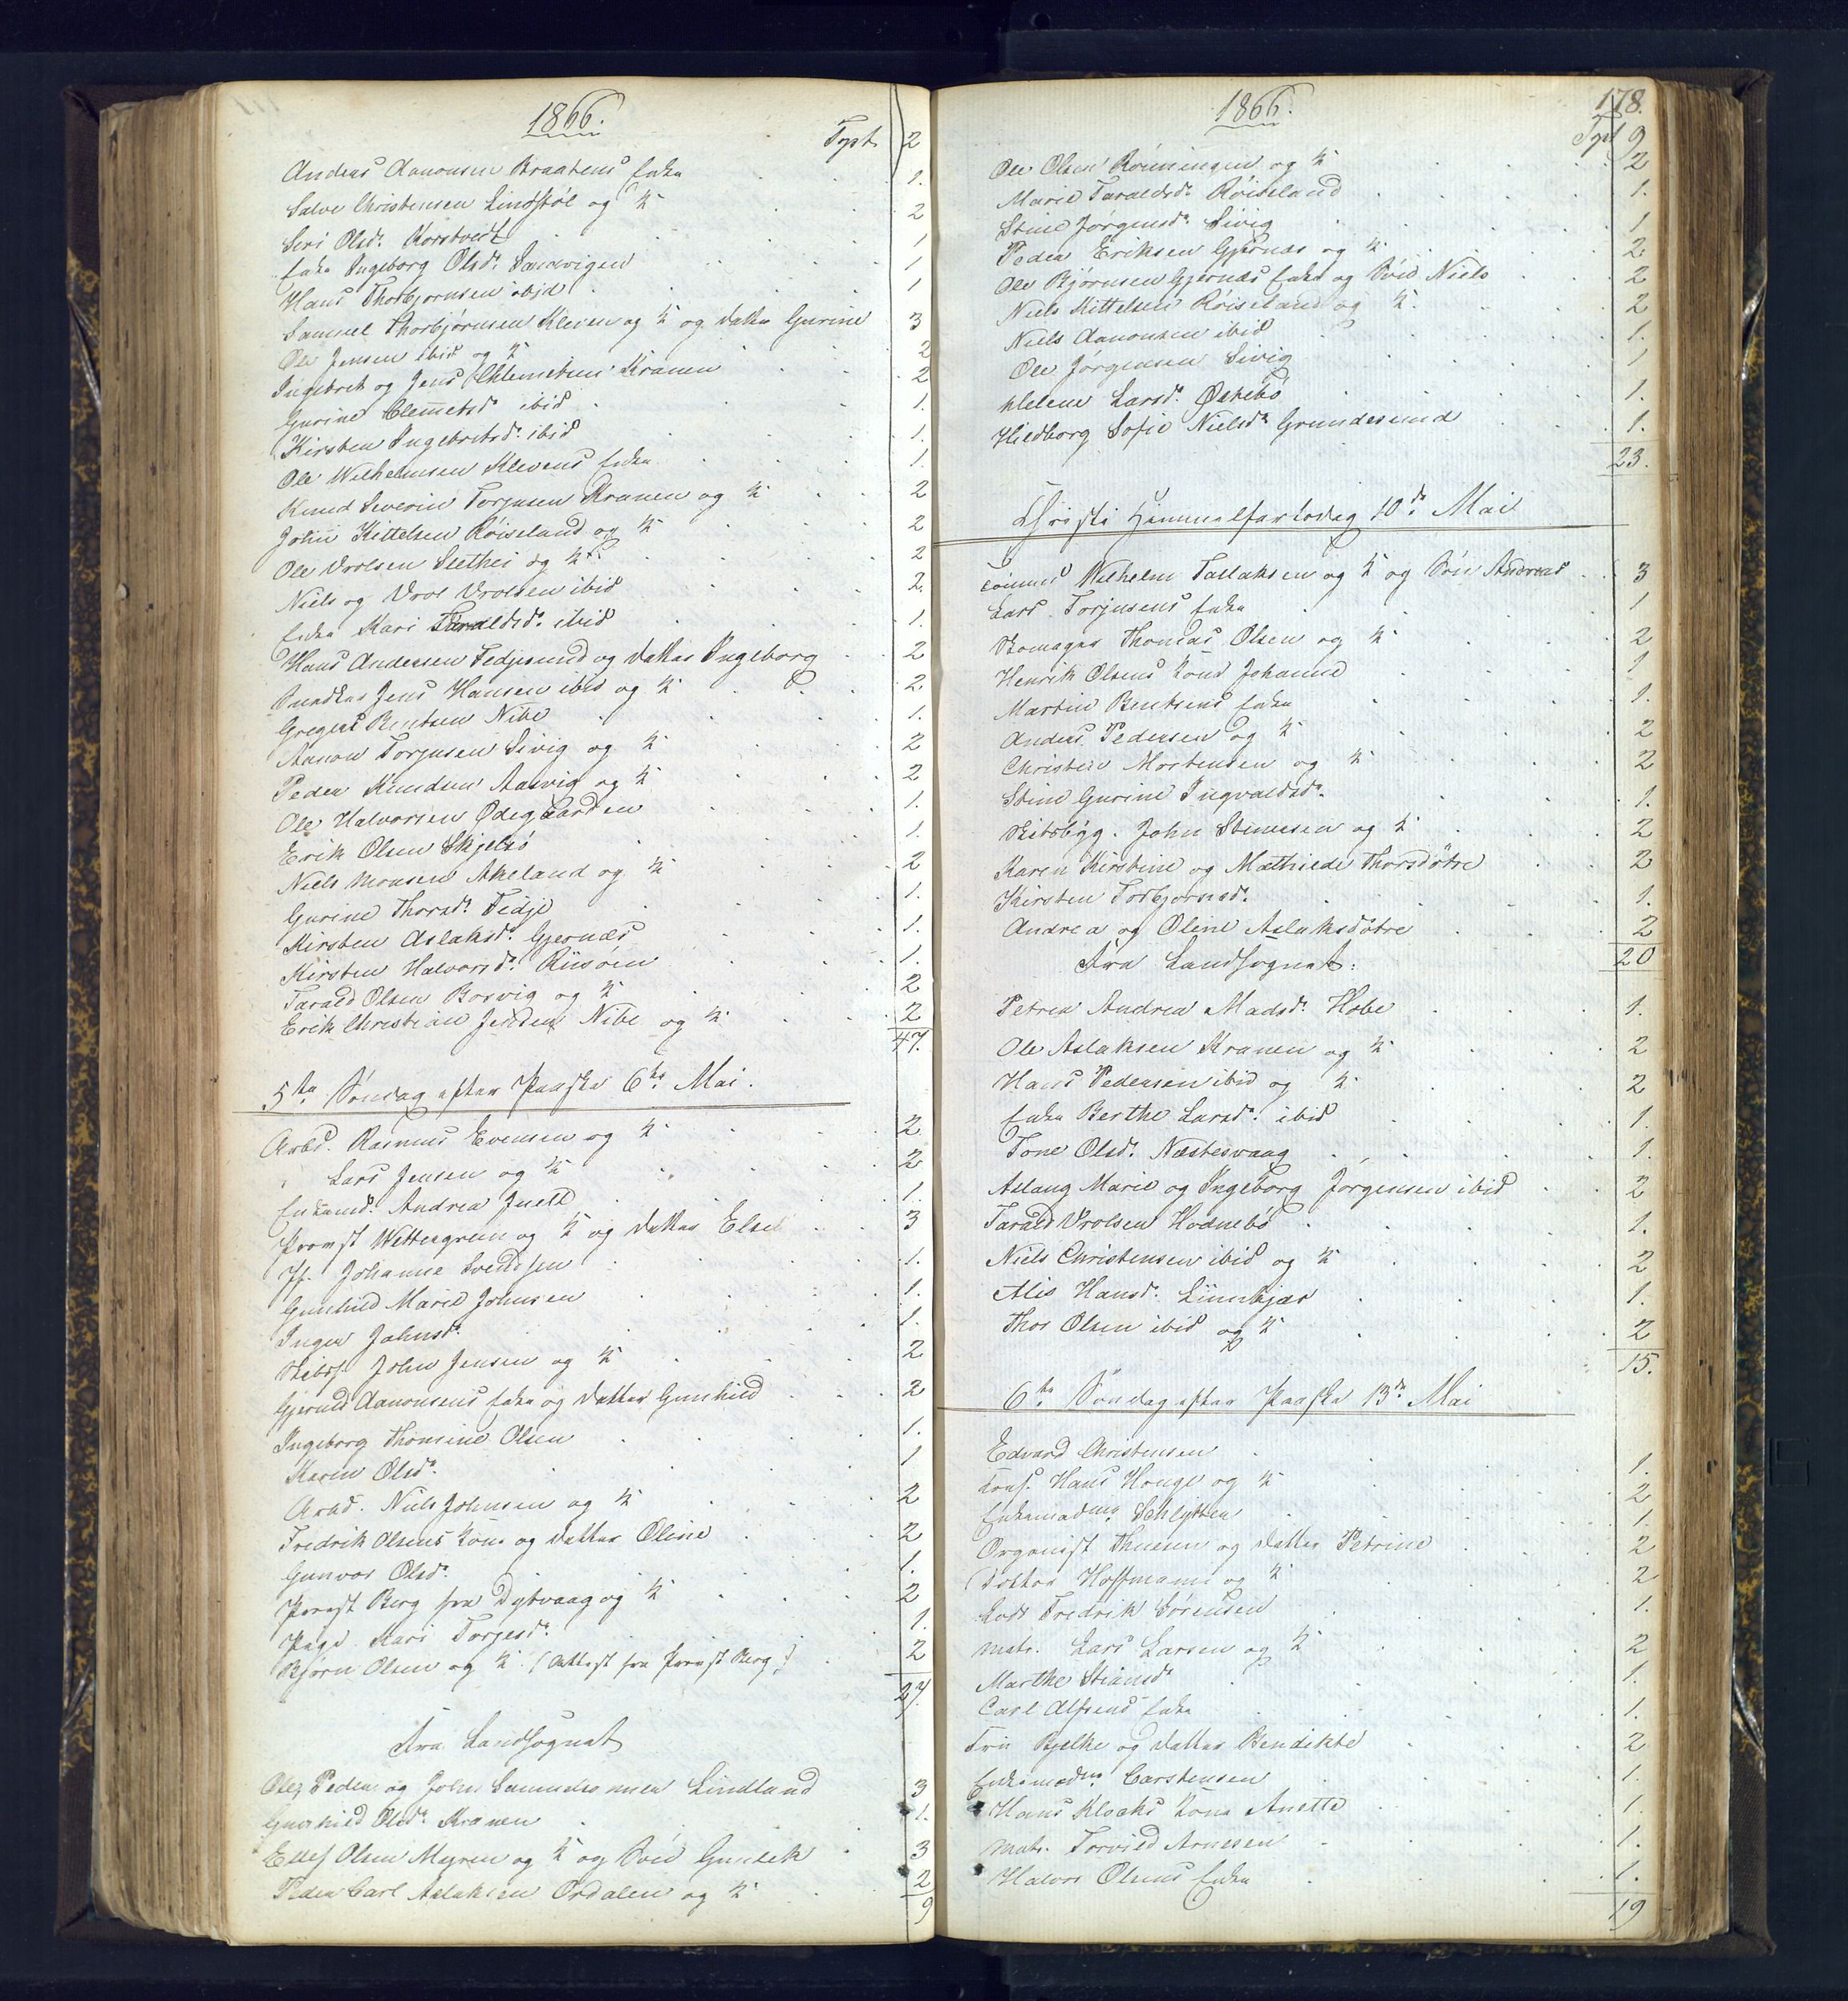 1866.
Tpt. 2
Anders Aanonsen Braatens Enke 1.
Salve Christensen Lindstøl og K. 2
Siri Olsd. Korstvedt 1
Enke Ingeborg Olsd. Sandvigen 1
Hans Thorbjørnsen ibid 1
Samuel Thorbjørnsen Kleven og K. og Datter Gurine 3
Ole Jensen ibid og K. 2
Ingebret og Jens Clemetsen Kranen 2
Gurine Clemetsd. ibid 1.
Kirsten Ingebretsd. ibid 1.
Ole Wilhelmsen Klevens Enke 1.
Knud Severin Torjusen Kranen og K. 2
John Kittelsen Røiseland og K. 2
Ole Vrolsen Sletthei og K. 2
Niels og Vrol Vrolsen ibid 2.
Enke Kari Taraldsd. ibid 1.
Hans Andersen Fedjesund og Datter Ingeborg 2
Snedker Jens Hansen ibid og K. 2
Gregers Bentsen Nibe 1.
Aanon Torjusen Sivig og K. 2
Peder Knudsen Aasvig og K. 2
Ole Halvorsen Ødegaarden 1.
Erik Olsen Skjelsø 1.
Niels Monsen Akeland og K. 2
Gurine Thorsd. Fedje 1.
Kirsten Aslaksd. Gjernæs 1.
Kirsten Halvorsd. Riisøen 1.
Tarald Olsen Bosvig og K. 2
Erik Christian Jensen Nibe og K. 2
47.
5te Søndag efter Paaske 6te Mai.
Arbd. Rasmus Evensen og K. 2
" Lars Jensen og K. 2
Enkemd. Andrea Juell 1.
Provst Wettergreen og K. og Datter Else 3
Jf. Johanne Svendsen 1.
Gunhild Marie Johnsen 1.
Inger Johnsd. 1.
Skibsf. John Jensen og K. 2
Gjeruld Aanonsens Enke og Datter Gunhild 2
Ingeborg Thomine Olsen 1.
Karen Olsd. 1
Arbd. Niels Johnsen og K. 2
Fredrik Olsens Kone og Datter Oline 2
Gunvor Olsd. 1.
Provst Berg fra Dybvaag og K. 2
Pige Kari Torjesd. 1.
Bjørn Olsen og K. (Attest fra Provst Berg) 2
27.
Fra Landsognet
Ole, Peder og John Samuelsønner Lindland 3
Gunhild Olsd. Kranen 1.
Ellef Olsen Myren og K. og Søn Gunlek 3
Peder Carl Aslaksen Ordalen og K. 2
9
1866.
178.
Tpt 9
Ole Olsen Rønningen og K. 2
Marie Taraldsd. Røiseland 1.
Stine Jørgensd. Sivig 1
Peder Eriksen Gjernæs og K. 2
Ole Bjørnsen Gjernæs Enke og Søn Niels 2
Niels Kittelsen Røiseland og K. 2
Niels Aanonsen ibid 1.
Ole Jørgensen Sivig 1
Helene Larsd. Østebø 1.
Hildborg Sofie Nielsd. Grundesund 1.
23.
Christi Himmelfartsdag 10de Mai
Wilhelm Tallaksen og K. og Søn Andreas 3
Lars Torjusens Enke 1
Skomager Thomas Olsen og K. 2
Henrik Olsens Kone Johanne 1
Martin Bentsens Enke 1.
Anders Pedersen og K. 2
Christen Mortensen og K. 2
Stine Gurine Ingvaldsd. 1.
Skibsbyg. John Simensen og K. 2
Karen Kirstine og Mathilde Thorsdøtre 2
Kirsten Torbjørnsd. 1.
Andrea og Oline Aslaksdøtre 2
20
Fra Landsognet:
Petrea Andrea Madsd. Hobe 1.
Ole Aslaksen Kranen og K. 2
Hans Pedersen ibid og K. 2
Enke Berthe Larsd. ibid 1.
Tone Olsd. Næstesvaag 1.
Aslaug Marie og Ingeborg Jørgensen ibid 2
Tarald Vrolsen Hødnebø 1.
Niels Christensen ibid og K. 2
Alis Hansd. Linnkjær 1.
Thor Olsen ibid og K. 2
15.
6te Søndag efter Paaske 13de Mai
Edvard Christensen 1.
Hans Houge og K. 2
Enkemadme Schlytter 1.
Organist Thuesen og Datter Petrine 2
Doktor Hoffmann og K. 2
Lods Fredrik Sørensen 1.
Matr. Lars Larsen og K. 2
Marthe Stiansd. 1.
Carl Alfsens Enke 1.
Fru Bjelke og Datter Bendikte 2
Enkemadme Carstensen 1.
Hans Klocks Kone Anette 1.
Matr. Torvild Arnesen 1.
Halvor Olsens Enke 1.
19